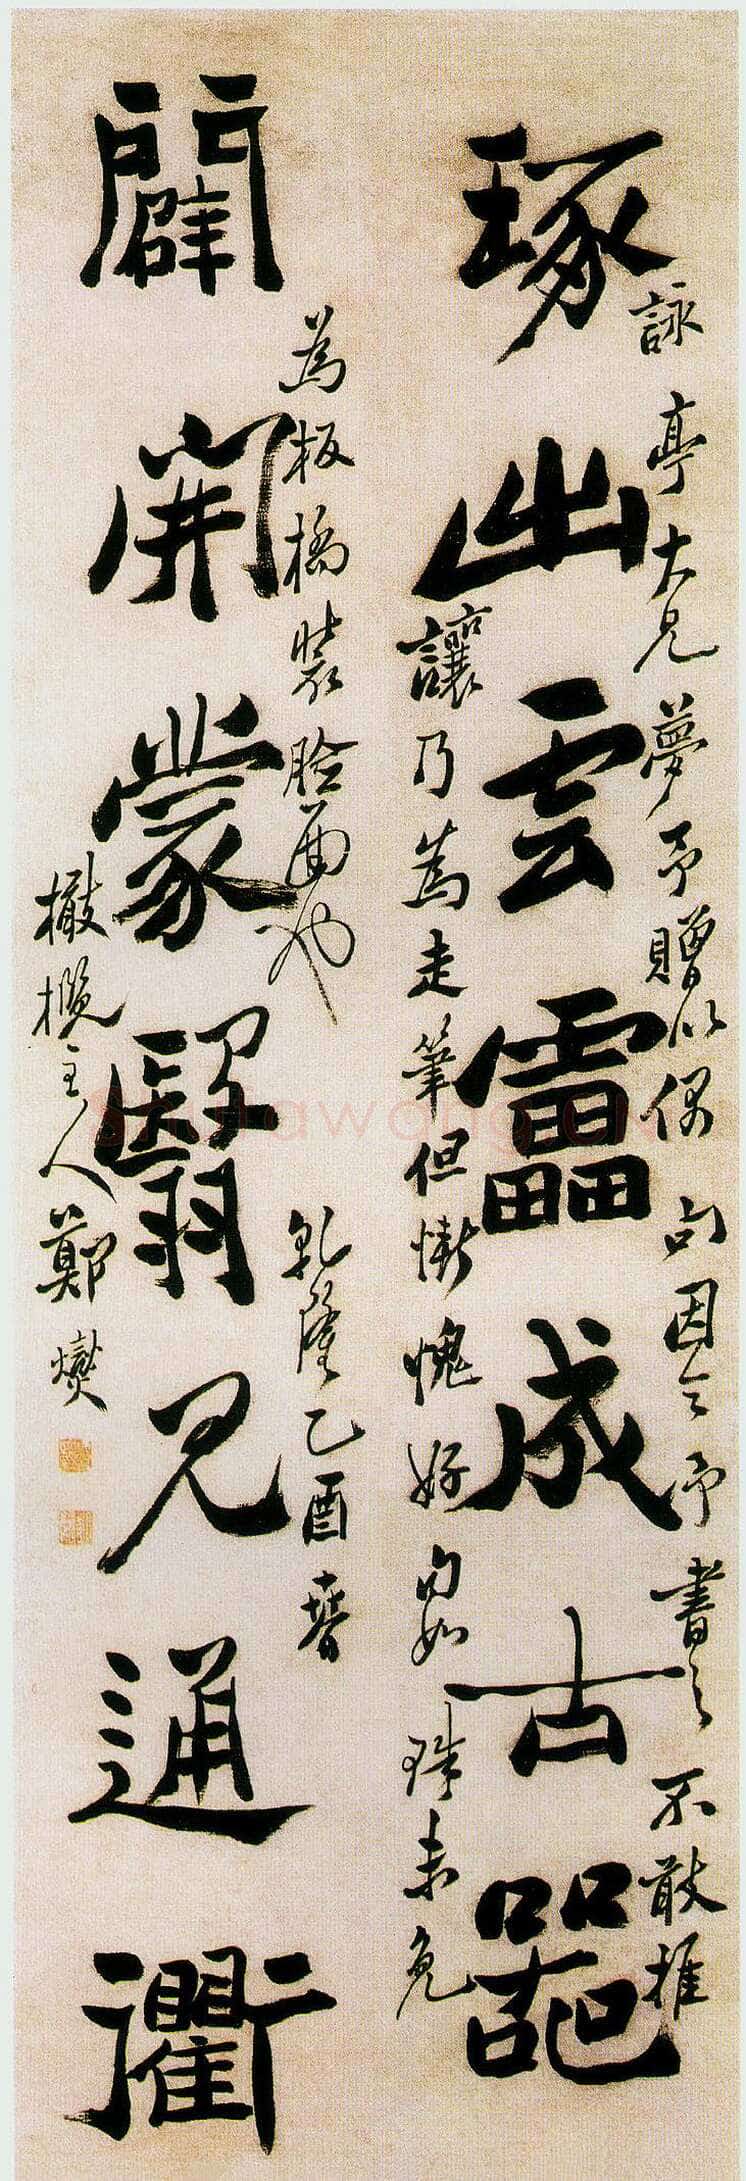 琢出雲靁成古器
詠亭大兄夢予贈以偶句因令予書之不敢推
讓乃為走筆但慚愧好句如珠未免
為板橋裝臉面也 乾隆乙酉春
闢開蒙翳見通衢
橄欖主人鄭燮